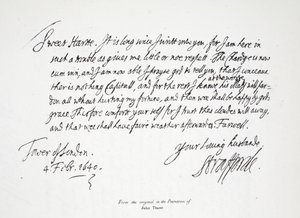 Sweet Harte. It is long since I writt unto you, for I am here in
such a trouble as gives me little or noe respett. The chardge is now
cum inn, and I am now able I prayse god to tell you, that I conceave
ther is nothing Capitall, and for the rest I knowe his Ma:tie will pardon
at the worste
all without hurting my fortune, and then wee shall be happy by god's
grace. Therfore comfort your self for I trust thes cloudes will away,
and that wee shall have faire weather afterwardes. Farewell.
Your loving husbande
Tower of London.
4. Feb:r. 1640.
Strafforde.
From the original in the Possession of